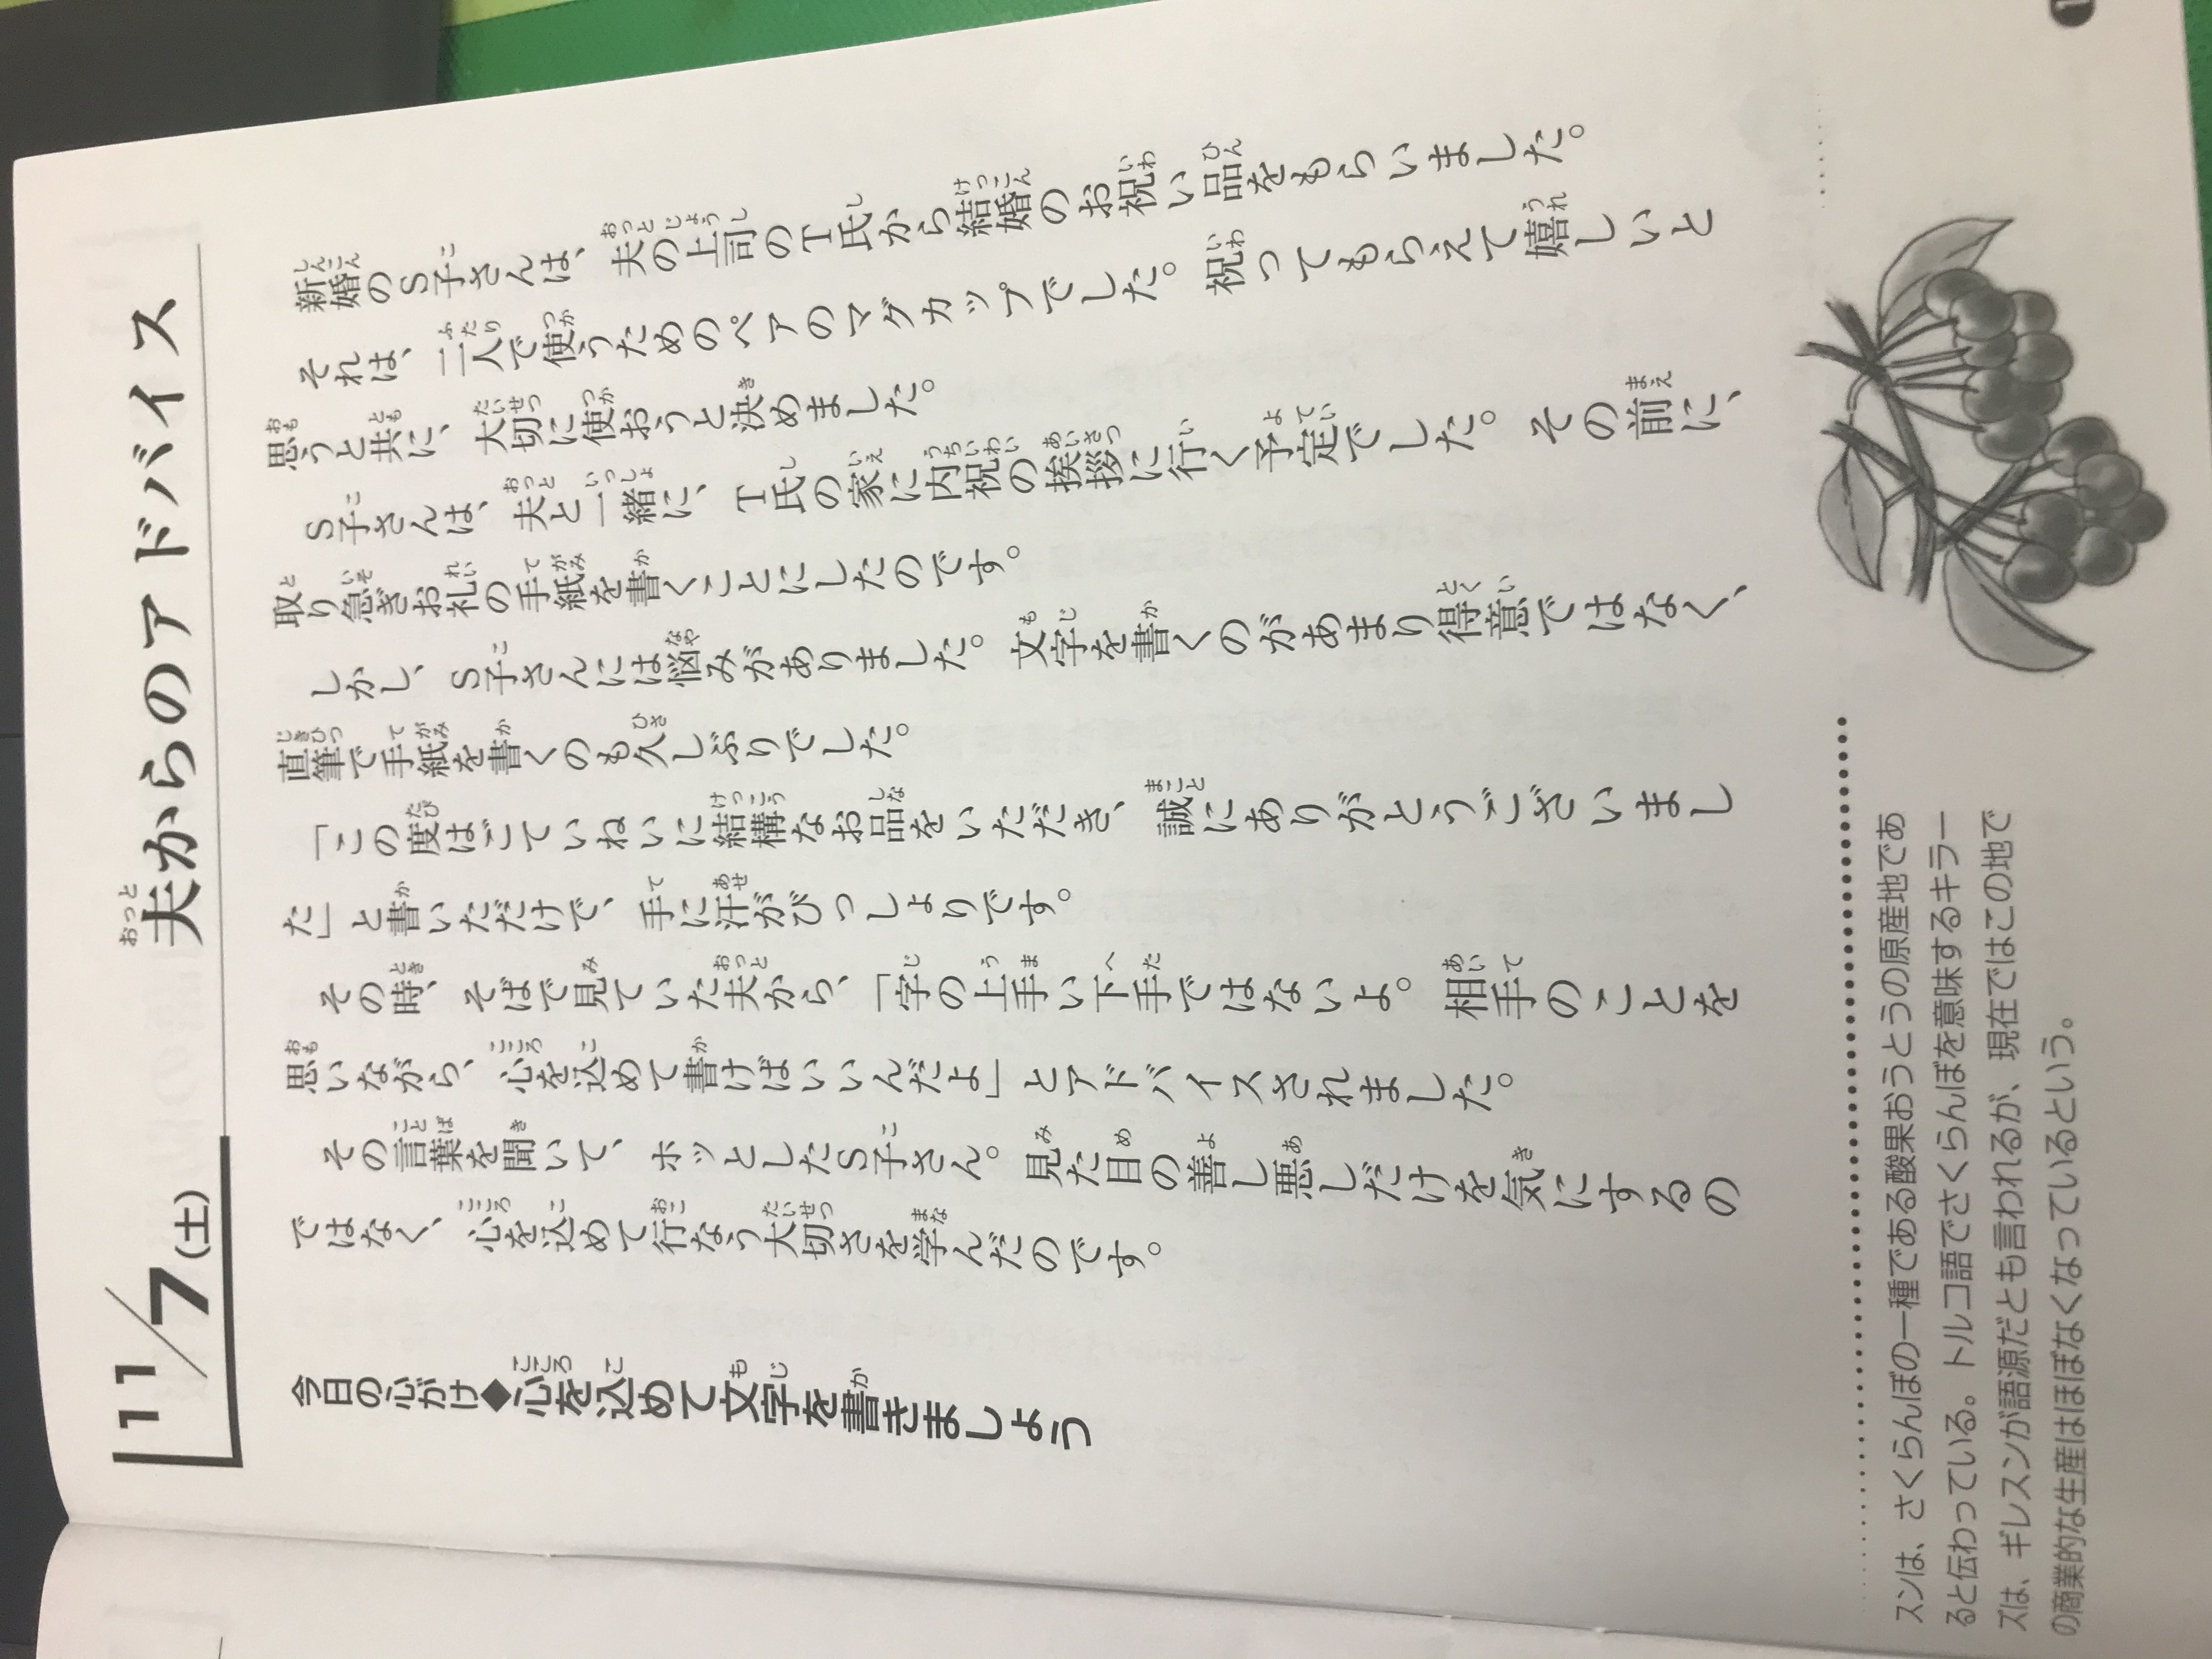 11/7(土)
夫からのアドバイス
新婚のS子さんは、夫の上司のT氏から結婚のお祝い品をもらいました。
それは、二人で使うためのペアのマグカップでした。祝ってもらえて嬉しいと
思うと共に、大切に使おうと決めました。
S子さんは、夫と一緒に、T氏の家に内祝の挨拶に行く予定でした。その前に、
取り急ぎお礼の手紙を書くことにしたのです。
しかし、S子さんには悩みがありました。文字を書くのがあまり得意ではなく、
直筆で手紙を書くのも久しぶりでした。
「この度はごていねいに結構なお品をいただき、誠にありがとうございまし
た」と書いただけで、手に汗がびっしょりです。
その時、そばで見ていた夫から、「字の上手い下手ではないよ。相手のことを
思いながら、心を込めて書けばいいんだよ」とアドバイスされました。
その言葉を聞いて、ホッとしたS子さん。見た目の善し悪しだけを気にするの
ではなく、心を込めて行なう大切さを学んだのです。
今日の心がけ◆心を込めて文字を書きましょう
スンは、さくらんぼの一種である酸果おうとうの原産地であ
ると伝わっている。トルコ語でさくらんぼを意味するキラー
ズは、ギレスンが語源だとも言われるが、現在ではこの地で
の商業的な生産はほぼなくなっているという。